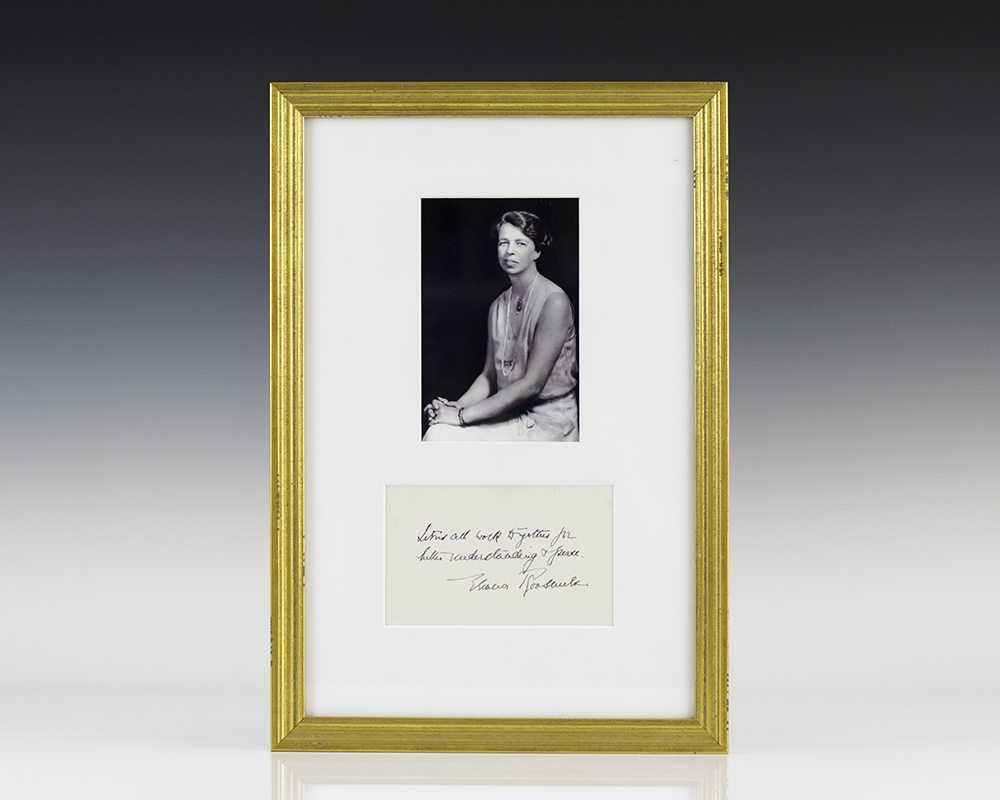 Let us all work together for
better understanding & peace.
Eleanor Roosevelt